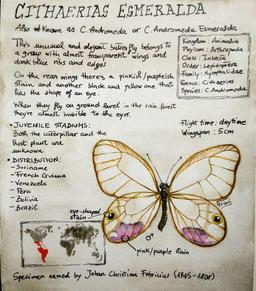 CITHAERIAS ESMERALDA
Also Known as C. Andromeda or C. Andromeda Esmeralda
This unusual and elegant butterfly belongs to
a group with almost transparent wings and
dark blue ribs and edges
On the rear wings there's a pinkish/purpleish
stain and another black and yellow one that
has the shape of an eye.
When they fly on ground level in the rain forest
they're almost invisible to the eyes.
Kingdom: Animalia
Phylum: Arthropoda
Class: Insecta
Order: Lepidoptera
Family: Nymphalidae
Genus: Cithaerias
Species: C. Andromeda
• JUVENILE STADIUMS:
Both the caterpillar and the
host plant are
unknown.
• DISTRIBUTION:
- Suriname
- French Guiana
- Venezuela
- Peru
- Bolivia
- Brazil
Flight time: daytime
Wingspan: 5cm
eye-shaped
stain
pink/purple stain
♂
Specimen named by Johan Christian Fabricius (1745-1808)